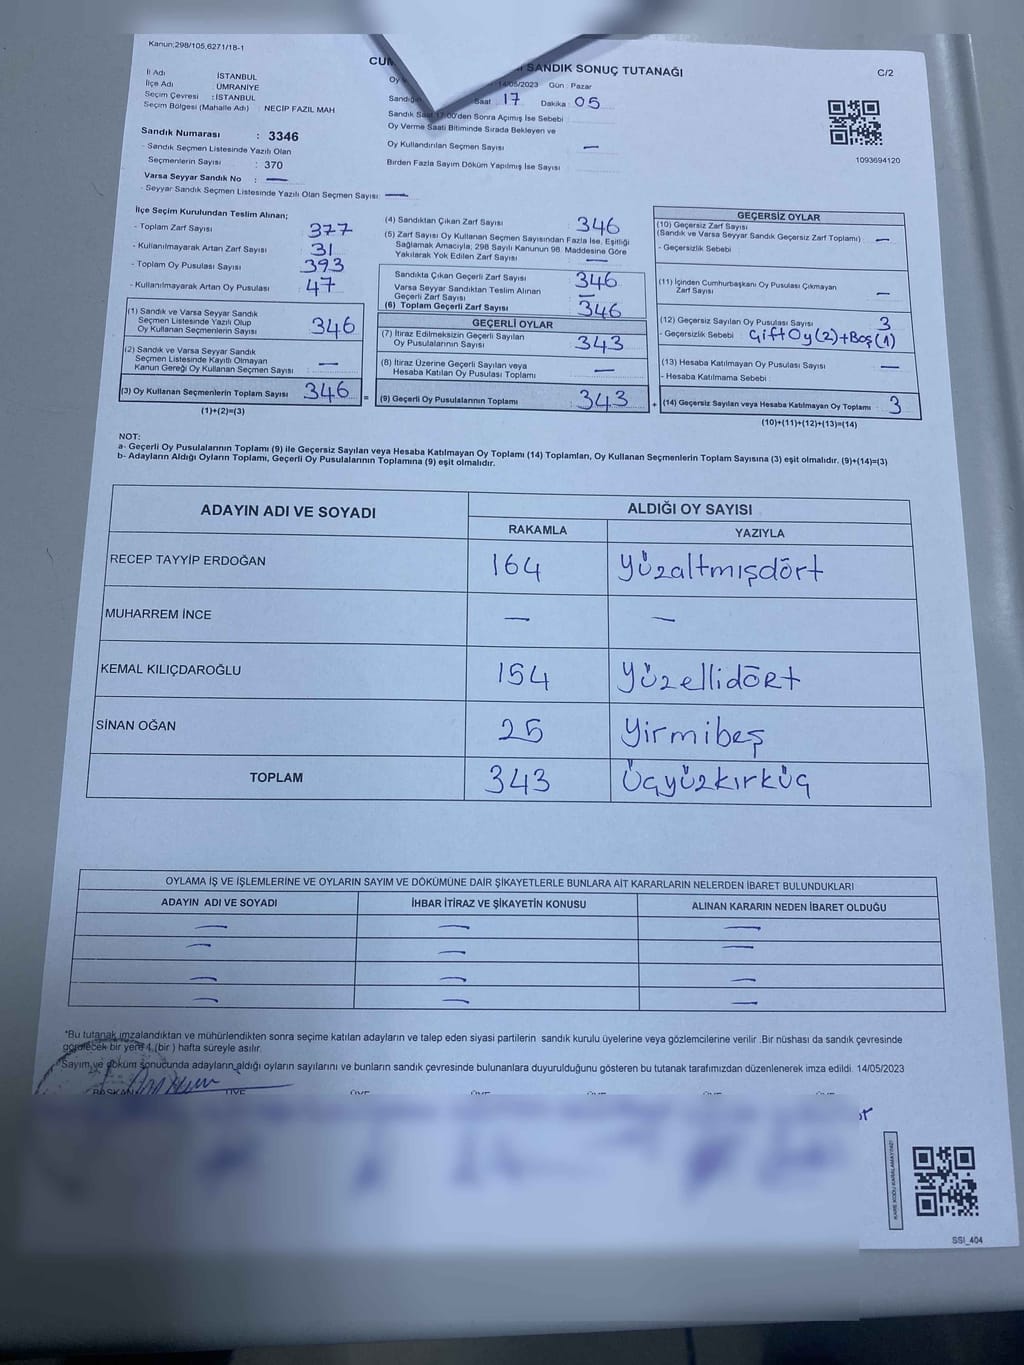 Kanun:298/105,6271/18-1
SANDIK SONUÇ TUTANAĞI
C/2
İl Adı İSTANBUL
İlçe Adı : ÜMRANİYE
Seçim Çevresi : İSTANBUL
Seçim Bölgesi (Mahalle Adı) : NECİP FAZIL MAH
14/05/2023 Gün : Pazar
Saat 17 Dakika : 05
17:00'den Sonra Açımış İse Sebebi
Oy Verme Saati Bitiminde Sırada Bekleyen ve
Oy Kullandırılan Seçmen Sayısı —
Birden Fazla Sayım Döküm Yapılmış İse Sayısı
1093694120
Sandık Numarası : 3346
- Sandık Seçmen Listesinde Yazılı Olan
Seçmenlerin Sayısı : 370
Varsa Seyyar Sandık No : —
- Seyyar Sandık Seçmen Listesinde Yazılı Olan Seçmen Sayısı : —
İlçe Seçim Kurulundan Teslim Alınan;
- Toplam Zarf Sayısı 377
- Kullanılmayarak Artan Zarf Sayısı 31
- Toplam Oy Pusulası Sayısı 393
- Kullanılmayarak Artan Oy Pusulası 47
(1) Sandık ve Varsa Seyyar Sandık
Seçmen Listesinde Yazılı Olup
Oy Kullanan Seçmenlerin Sayısı 346
(2) Sandık ve Varsa Seyyar Sandık
Seçmen Listesinde Kayıtlı Olmayan
Kanun Gereği Oy Kullanan Seçmen Sayısı —
(3) Oy Kullanan Seçmenlerin Toplam Sayısı 346 =
(1)+(2)=(3)
(4) Sandıktan Çıkan Zarf Sayısı 346
(5) Zarf Sayısı Oy Kullanan Seçmen Sayısından Fazla İse, Eşitliği
Sağlamak Amacıyla; 298 Sayılı Kanunun 98. Maddesine Göre
Yakılarak Yok Edilen Zarf Sayısı —
Sandıkta Çıkan Geçerli Zarf Sayısı 346
Varsa Seyyar Sandıktan Teslim Alınan
Geçerli Zarf Sayısı —
(6) Toplam Geçerli Zarf Sayısı 346
GEÇERLİ OYLAR
(7) İtiraz Edilmeksizin Geçerli Sayılan
Oy Pusulalarının Sayısı 343
(8) İtiraz Üzerine Geçerli Sayılan veya
Hesaba Katılan Oy Pusulası Toplamı —
(9) Geçerli Oy Pusulalarının Toplamı 343 +
GEÇERSİZ OYLAR
(10) Geçersiz Zarf Sayısı
(Sandık ve Varsa Seyyar Sandık Geçersiz Zarf Toplamı) —
- Geçersizlik Sebebi
(11) İçinden Cumhurbaşkanı Oy Pusulası Çıkmayan
Zarf Sayısı —
(12) Geçersiz Sayılan Oy Pusulası Sayısı 3
- Geçersizlik Sebebi Çift Oy(2)+Boş(1)
(13) Hesaba Katılmayan Oy Pusulası Sayısı —
- Hesaba Katılmama Sebebi
(14) Geçersiz Sayılan veya Hesaba Katılmayan Oy Toplamı 3
(10)+(11)+(12)+(13)=(14)
NOT:
a- Geçerli Oy Pusulalarının Toplamı (9) ile Geçersiz Sayılan veya Hesaba Katılmayan Oy Toplamı (14) Toplamları, Oy Kullanan Seçmenlerin Toplam Sayısına (3) eşit olmalıdır. (9)+(14)=(3)
b- Adayların Aldığı Oyların Toplamı, Geçerli Oy Pusulalarının Toplamına (9) eşit olmalıdır.
ADAYIN ADI VE SOYADI
ALDIĞI OY SAYISI
RAKAMLA YAZIYLA
RECEP TAYYİP ERDOĞAN 164 Yüzaltmışdört
MUHARREM İNCE — —
KEMAL KILIÇDAROĞLU 154 Yüzellidört
SİNAN OĞAN 25 Yirmibeş
TOPLAM 343 Üçyüzkırküç
OYLAMA İŞ VE İŞLEMLERİNE VE OYLARIN SAYIM VE DÖKÜMÜNE DAİR ŞİKAYETLERLE BUNLARA AİT KARARLARIN NELERDEN İBARET BULUNDUKLARI
ADAYIN ADI VE SOYADI İHBAR İTİRAZ VE ŞİKAYETİN KONUSU ALINAN KARARIN NEDEN İBARET OLDUĞU
— — —
— — —
— — —
— — —
*Bu tutanak imzalandıktan ve mühürlendikten sonra seçime katılan adayların ve talep eden siyasi partilerin sandık kurulu üyelerine veya gözlemcilerine verilir .Bir nüshası da sandık çevresinde
görülecek bir yere 1 (bir ) hafta süreyle asılır.
*Sayım ve döküm sonucunda adayların aldığı oyların sayılarını ve bunların sandık çevresinde bulunanlara duyurulduğunu gösteren bu tutanak tarafımızdan düzenlenerek imza edildi. 14/05/2023
BAŞKAN ÜYE ÜYE ÜYE ÜYE ÜYE ÜYE
KARE KODU KARALAMAYINIZ!
SSI_404